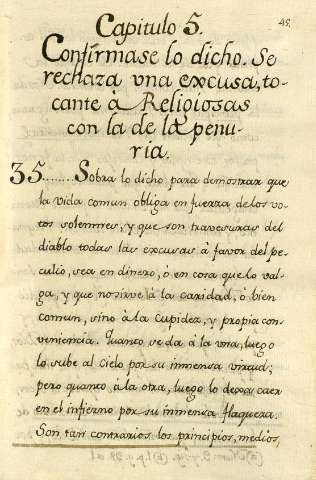 45.
Capitulo 5.
Confírmase lo dicho. Se
rechaza vna excusa, to-
cante à Religiosas
con la de la penu-
ria.
35........Sobra lo dicho para demostrar que
la vida comun obliga en fuerza de los vo-
tos solemnes, y que son travesuras del
diablo todas las excusas à favor del pe-
culio, sea en dinero, ò en cosa que lo val-
ga, y que no sirve à la caridad, ò bien
comun, sino à la cupidez, y propia con-
veniencia. Quanto se da à la vna, luego
lo sube al cielo por su inmensa virtud;
pero quanto à la otra, luego lo dexa caer
en el infierno por su inmensa flaqueza.
Son tan contrarios los principios, medios,